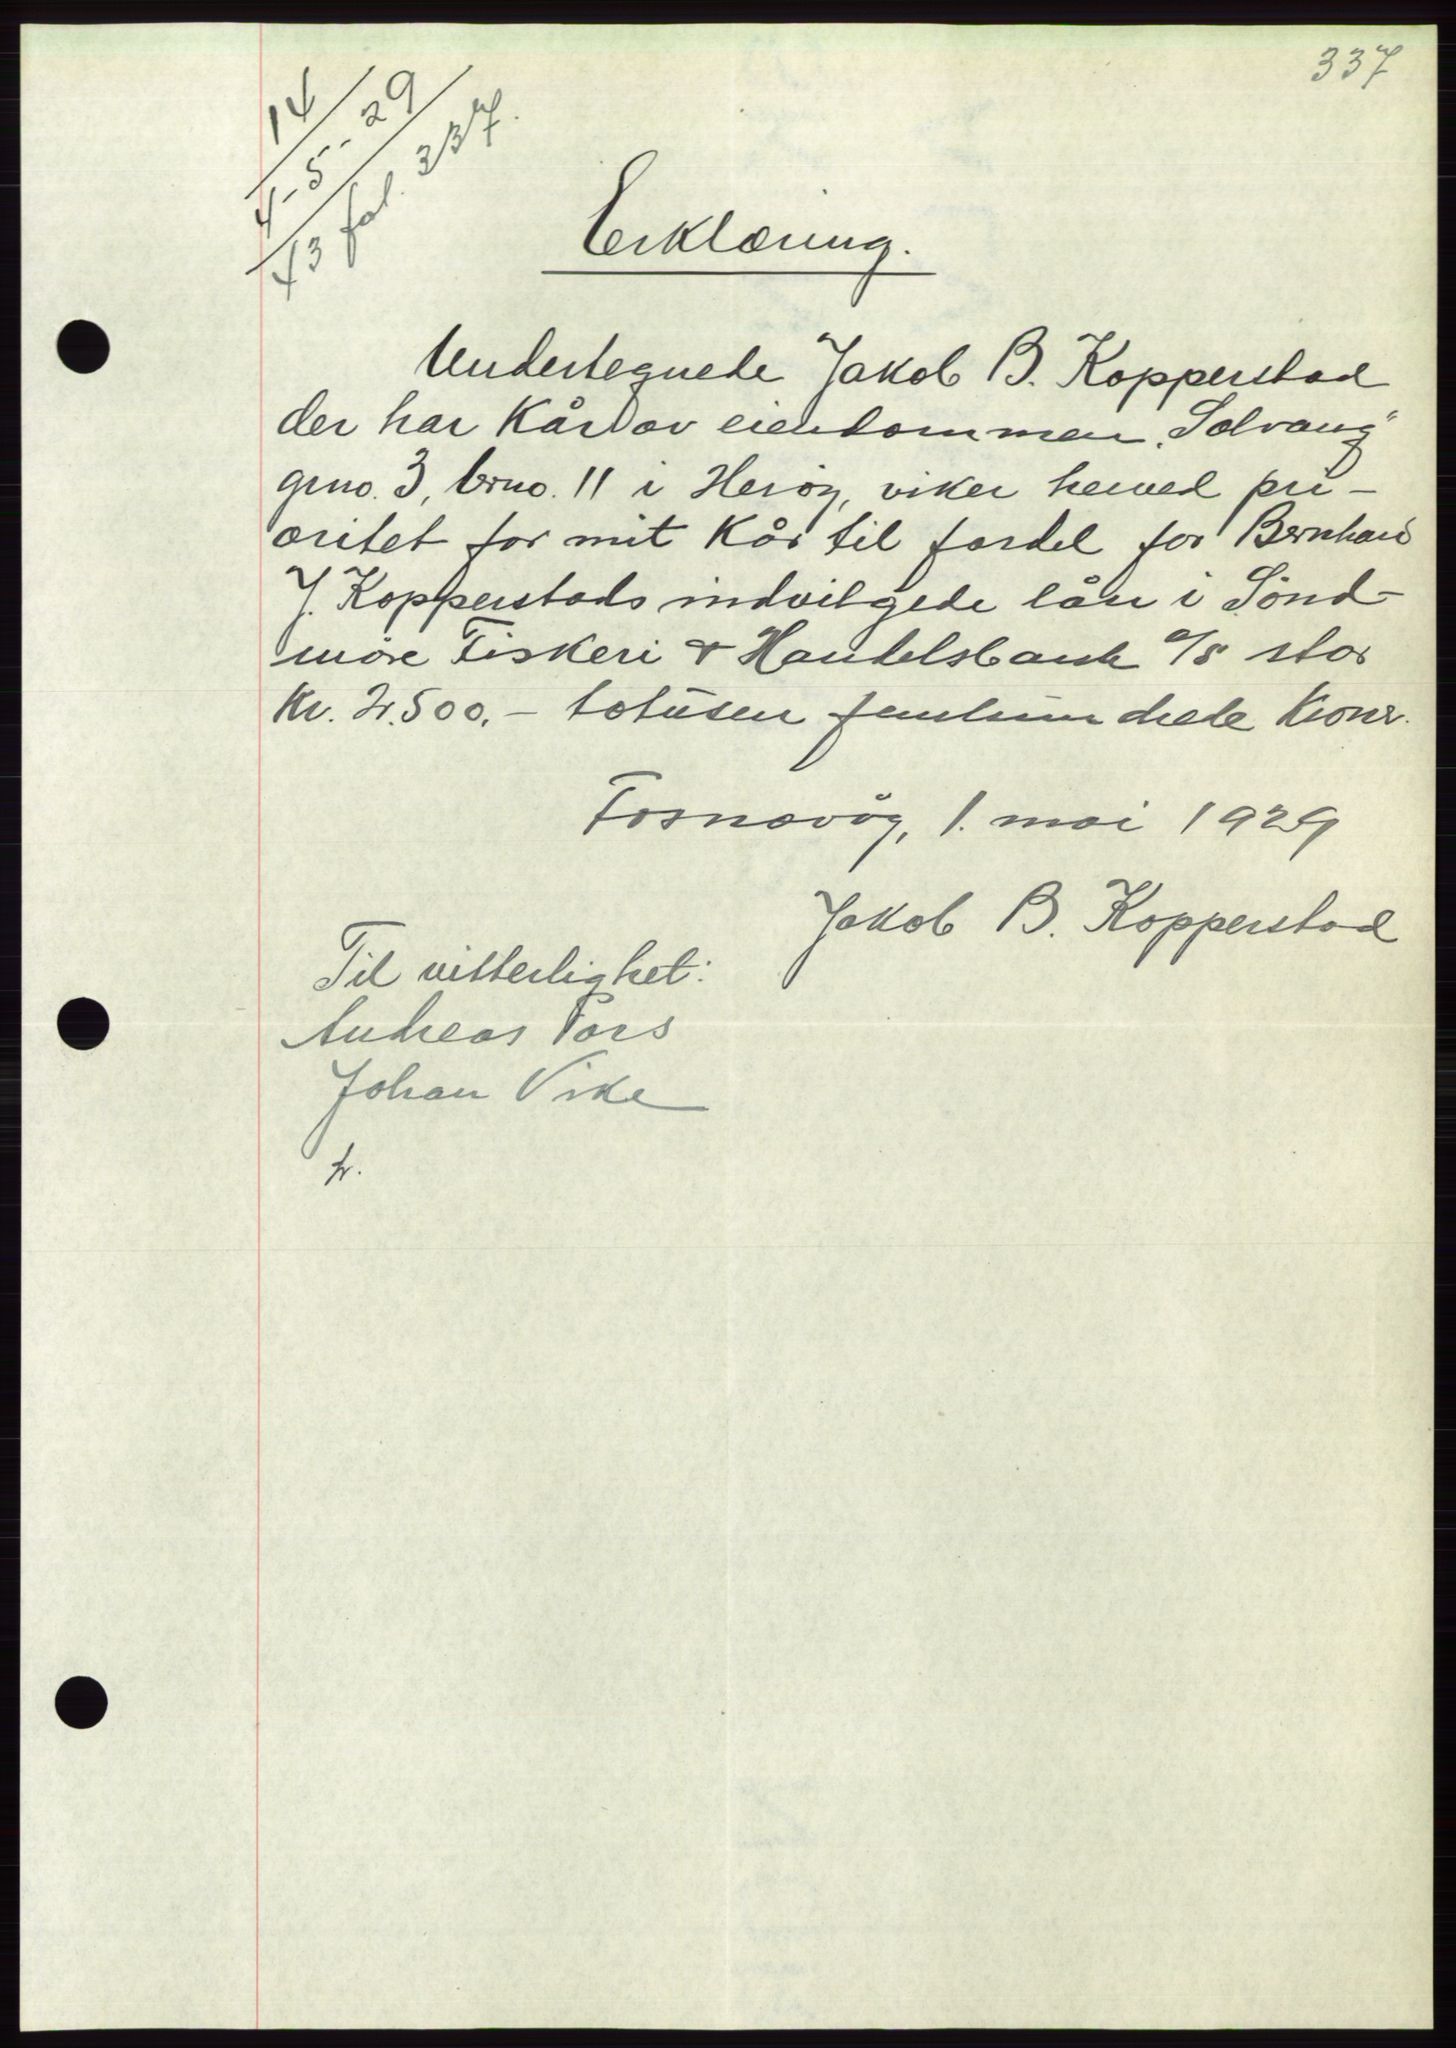 337
14
4-5-29
43 fol. 337.
Erklæring.
Undertegnede Jakob B. Kopperstad
der har Kår av eiendommen „Solvang"
grno. 3, brno. 11 i Herøy, viker herved pri-
oritet for mit Kår til fordel for Bernhard
J. Kopperstads indvilgede lån i Sönd-
möre Fiskeri & Handelsbank a/s stor
Kr. 2.500.- totusen femhundrede Kroner.
Fosnavåg, 1. mai 1929
Jakob B. Kopperstad
Til vitterlighet:
Andreas Pors
Johan Vike